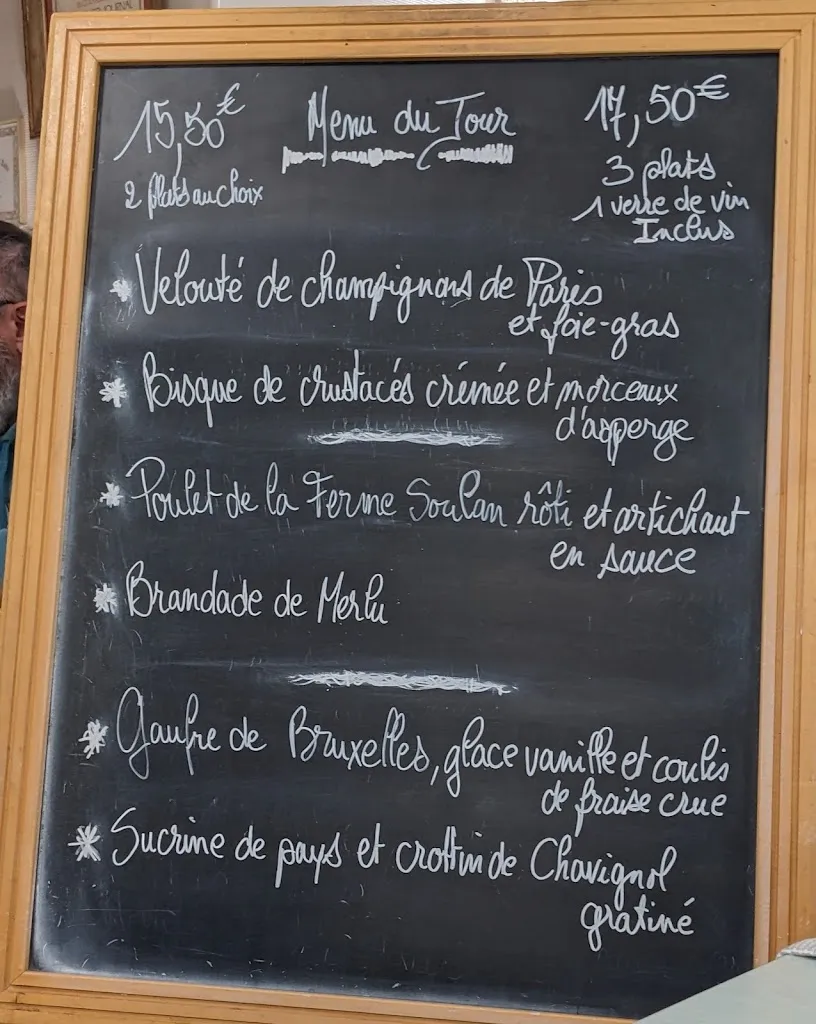 15,50€
2 plats au choix
Menu du Tour
17,50€
3 plats
1 verre de vin
Inclus
* Velouté de champignons de Paris
et foie-gras
* Bisque de crustacés crémée et morceaux
d'asperge
* Poulet de la Ferme Soulan rôti et artichaut
en sauce
* Brandade de Merlu
* Gaufre de Bruxelles, glace vanille et coulis
de fraise crue
* Sucrine de pays et crottin de Chavignol
gratiné